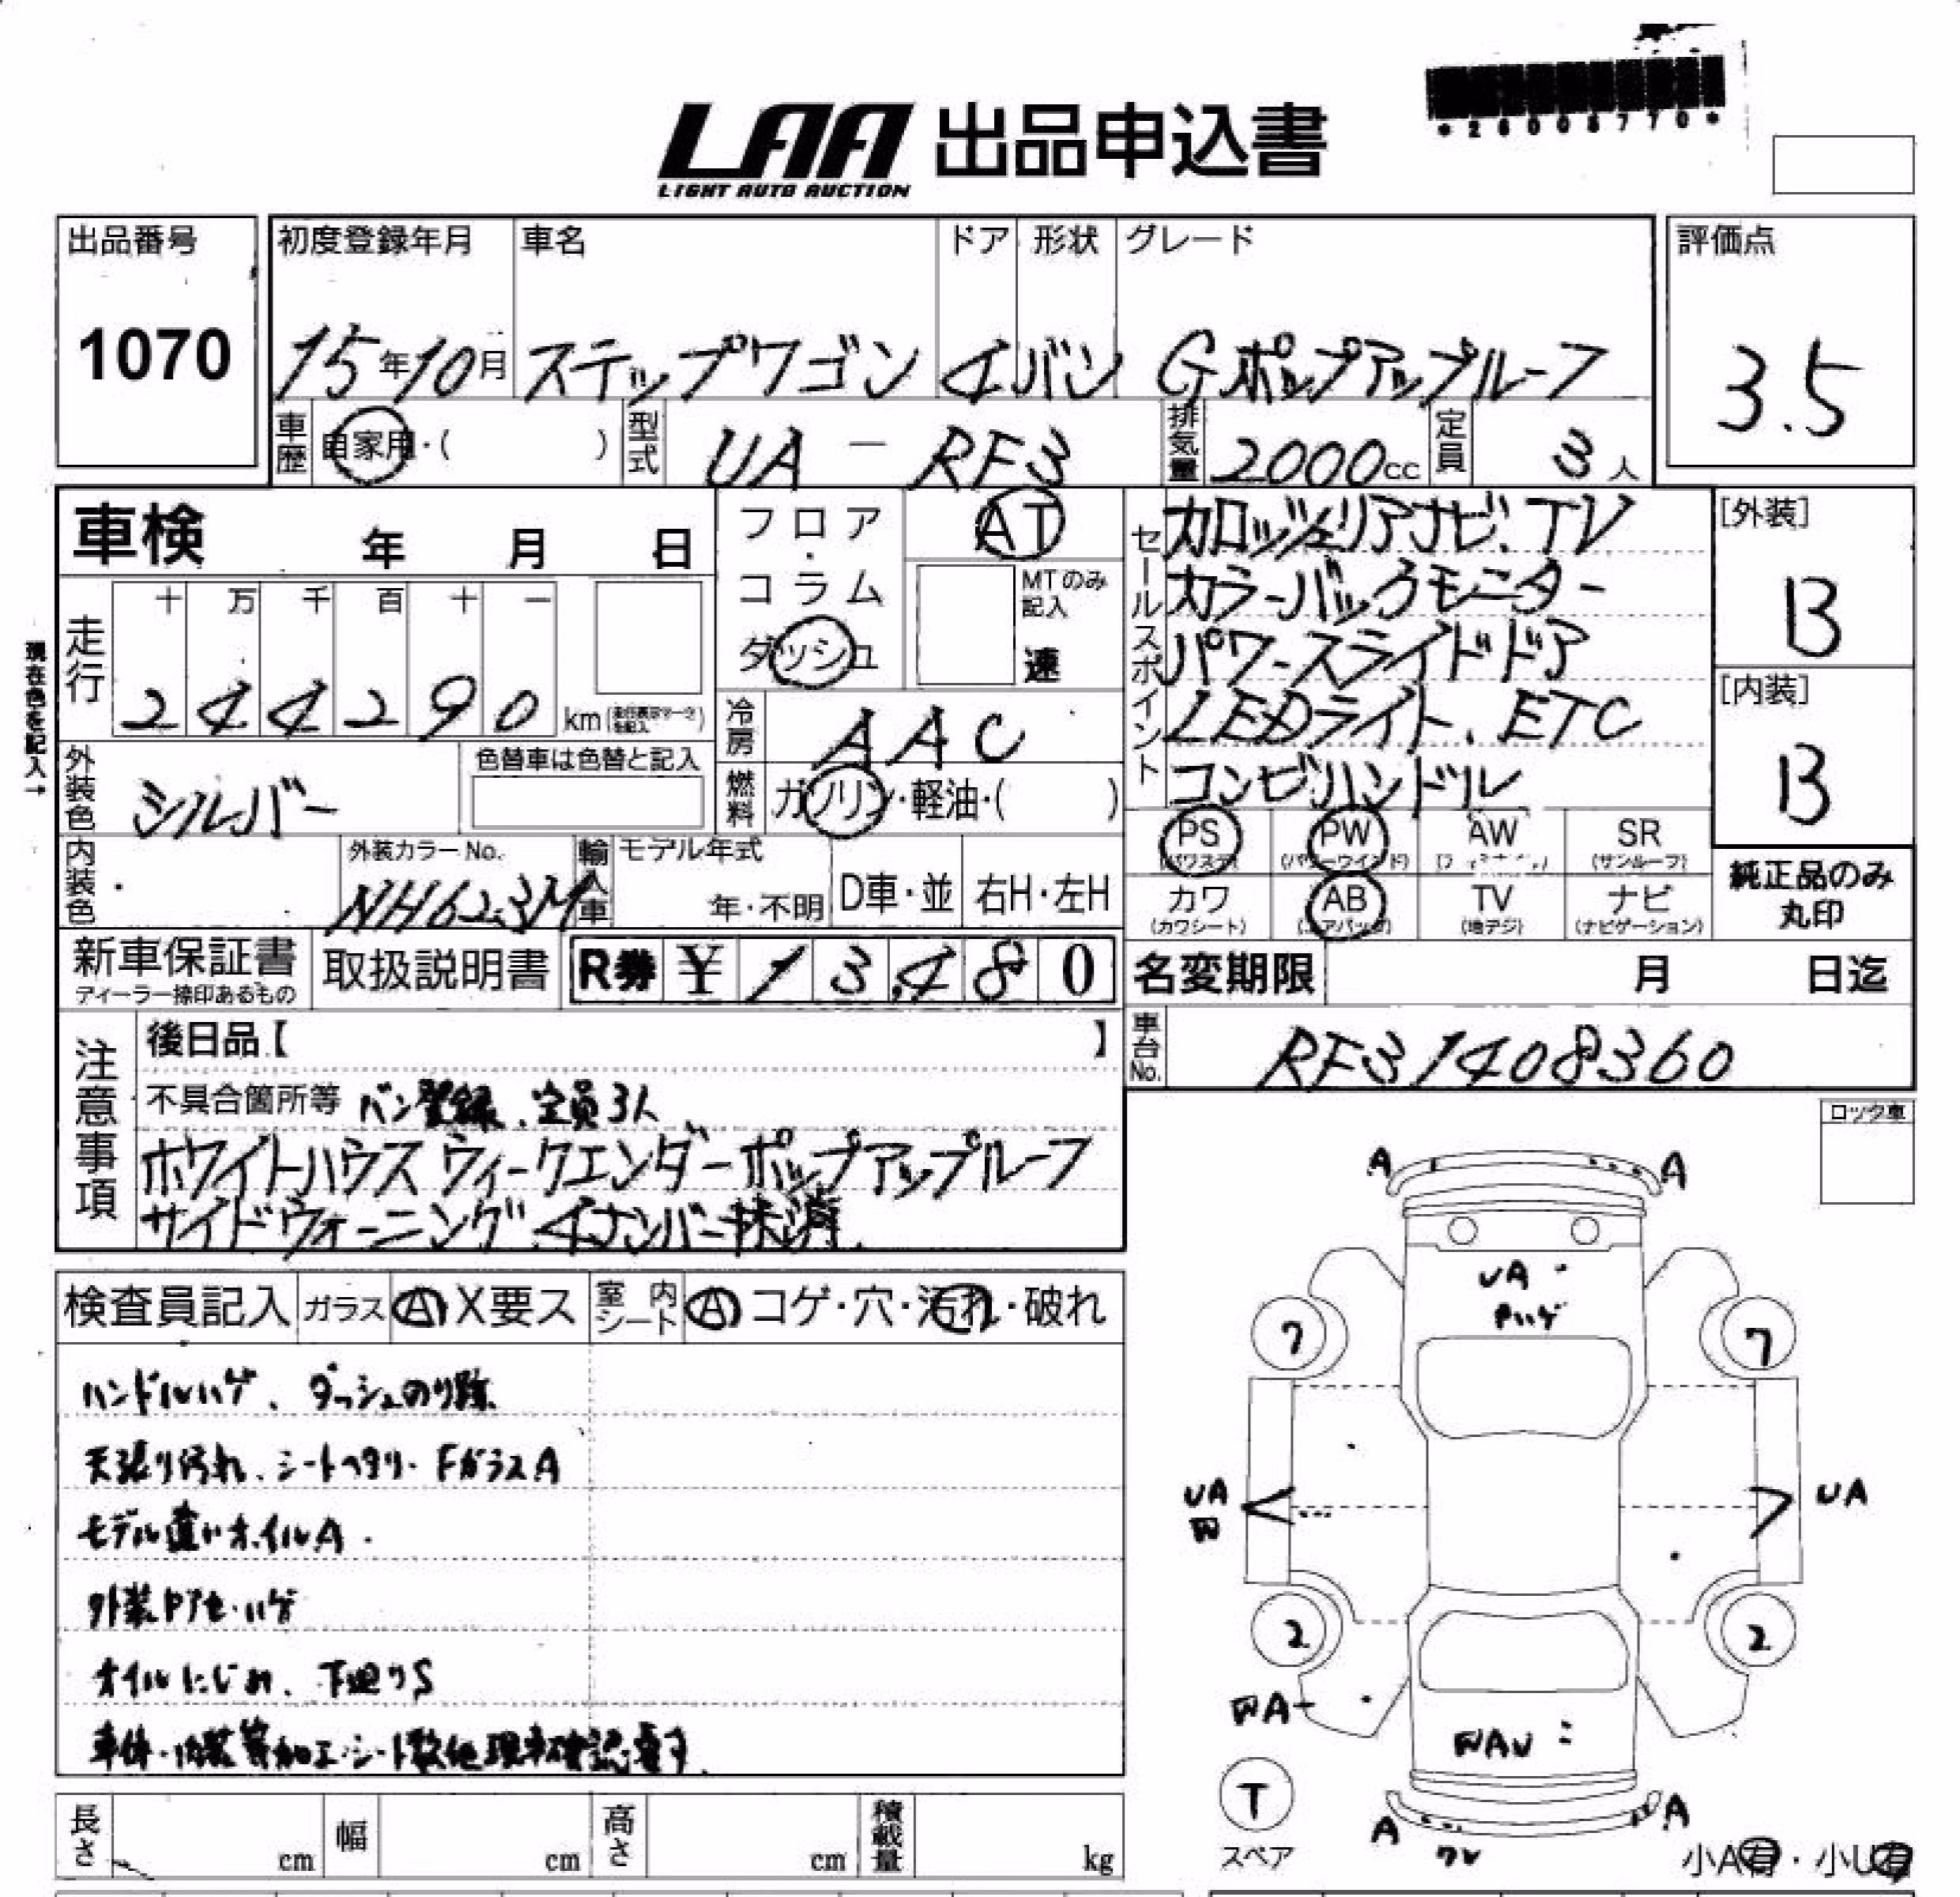 *26008770*
LAA 出品申込書
LIGHT AUTO AUCTION
出品番号
1070
初度登録年月
15年10月
車名
ステップワゴン
ドア
4
形状
バン
グレード
Gポップアップルーフ
評価点
3.5
車歴
自家用・( )
型式
UA-RF3
排気量
2000cc
定員
3人
車検 年 月 日
フロア・コラム
ダッシュ
AT
MTのみ記入
速
現在色を記入→
走行
十 万 千 百 十 一
2 4 4 2 9 0 km
冷房
AAC
燃料
ガソリン・軽油・( )
外装色
シルバー
色替車は色替と記入
内装色
外装カラーNo.
NH623M
輸入車
モデル年式
年・不明
D車・並
右H・左H
セールスポイント
カロッツェリアナビ、TV
カラーバックモニター
パワースライドドア
LEDライト、ETC
コンビハンドル
[外装]
B
[内装]
B
PS (パワステ)
PW (パワーウインド)
AW
SR (サンルーフ)
カワ (カワシート)
AB (エアバッグ)
TV (地デジ)
ナビ (ナビゲーション)
純正品のみ
丸印
新車保証書
ディーラー捺印あるもの
取扱説明書
R券 ¥13,480
名変期限 月 日迄
車台No.
RF31408360
注意事項
後日品【 】
不具合箇所等 バン登録、定員3人
ホワイトハウス ウィークエンダーポップアップルーフ
サイドウォーニング 4ナンバー抹消
検査員記入 ガラス A X要ス 室内シート A コゲ・穴・汚れ・破れ
ハンドルハゲ、ダッシュのり跡
天張り汚れ、シートヘタリ・FガラスA
モデル違いホイルA
外装ドアセ・ハゲ
オイルにじみ、下廻りS
車体・内装等加工・シート数他現車確認要す
ロック車
A A
UA
ハゲ
7 7
UA
UA
2 2
A
T
スペア
A A
ワレ
小A有・小U有
長さ cm
幅 cm
高さ cm
積載量 kg